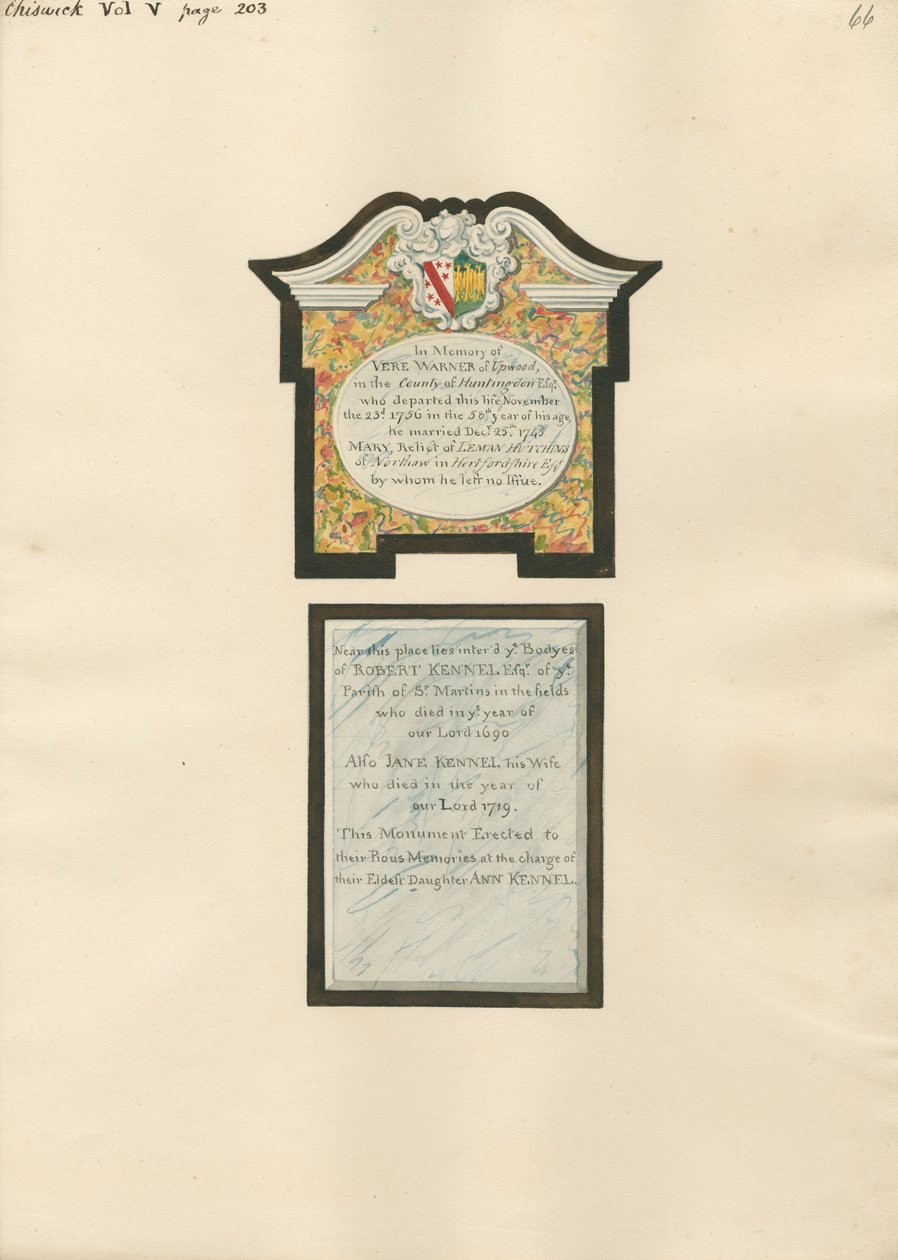 Chiswick Vol V page 203
66
In Memory of
VERE WARNER of Upwood,
in the County of Huntingdon Esqr.
who departed this life November
the 23d. 1756 in the 58th year of his age,
he married Decr. 25th. 1745
MARY, Relict of LEMAN HUTCHINS
of Northaw in Hertfordſhire Eſqr.
by whom he left no Iſſue.
Near this place lies inter'd ye. Bodyes
of ROBERT KENNEL Eſqr. of ye.
Pariſh of St. Martins in the fields
who died in ye. year of
our Lord 1690
Alſo JANE KENNEL his Wife
who died in the year of
our Lord 1719.
This Monument Erected to
their Pious Memories at the charge of
their Eldeſt Daughter ANN KENNEL.